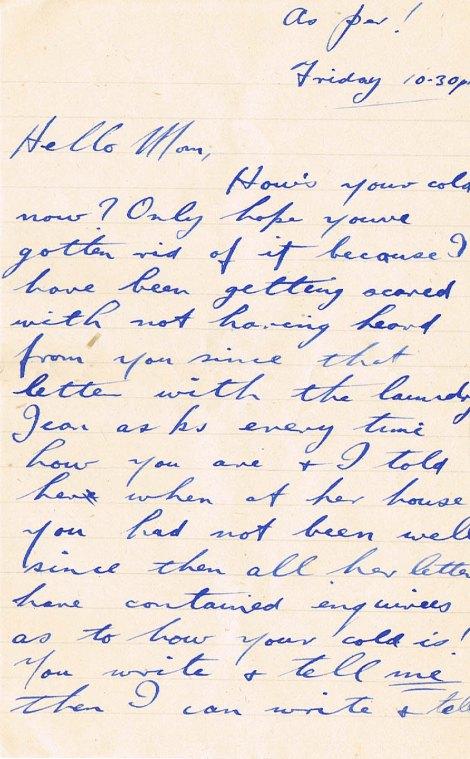 As per!
Friday 10-30p
Hello Mom,
How's your cold
now? Only hope youve
gotten rid of it because I
have been getting scared
with not having heard
from you since that
letter with the laundry
Jean asks every time
how you are & I told
her when at her house
you had not been well
since then all her letter
have contained enquiries
as to how your cold is!
You write & tell me
then I can write & tell